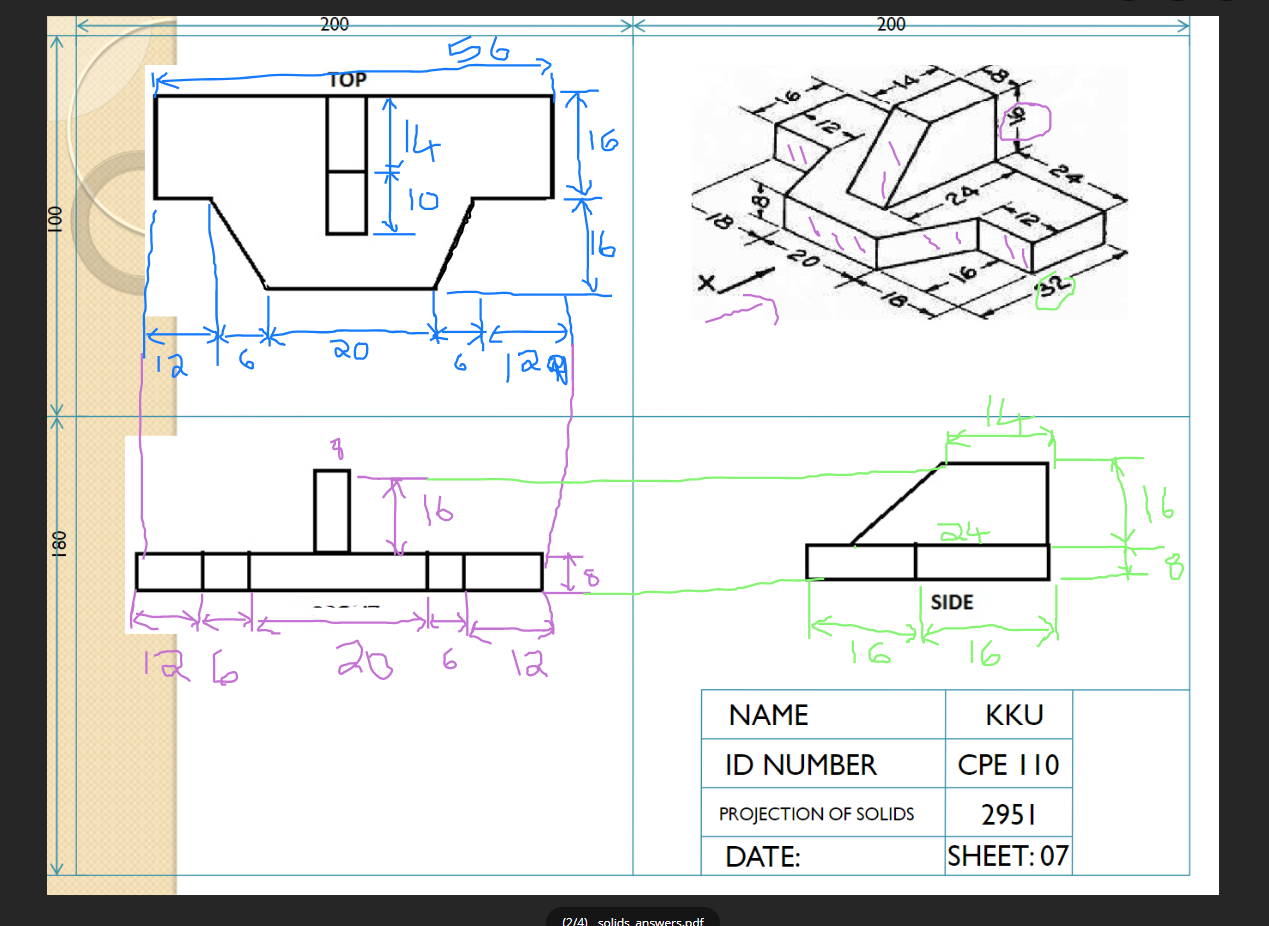 200
200
56
TOP
14
10
16
16
12
6
20
6
12
100
180
16
14
8
12
24
24
12
8
18
20
16
18
32
X
8
16
8
12
6
20
6
12
14
16
24
8
SIDE
16
16
NAME KKU
ID NUMBER CPE 110
PROJECTION OF SOLIDS 2951
DATE: SHEET: 07
(2/4) solids_answers.pdf